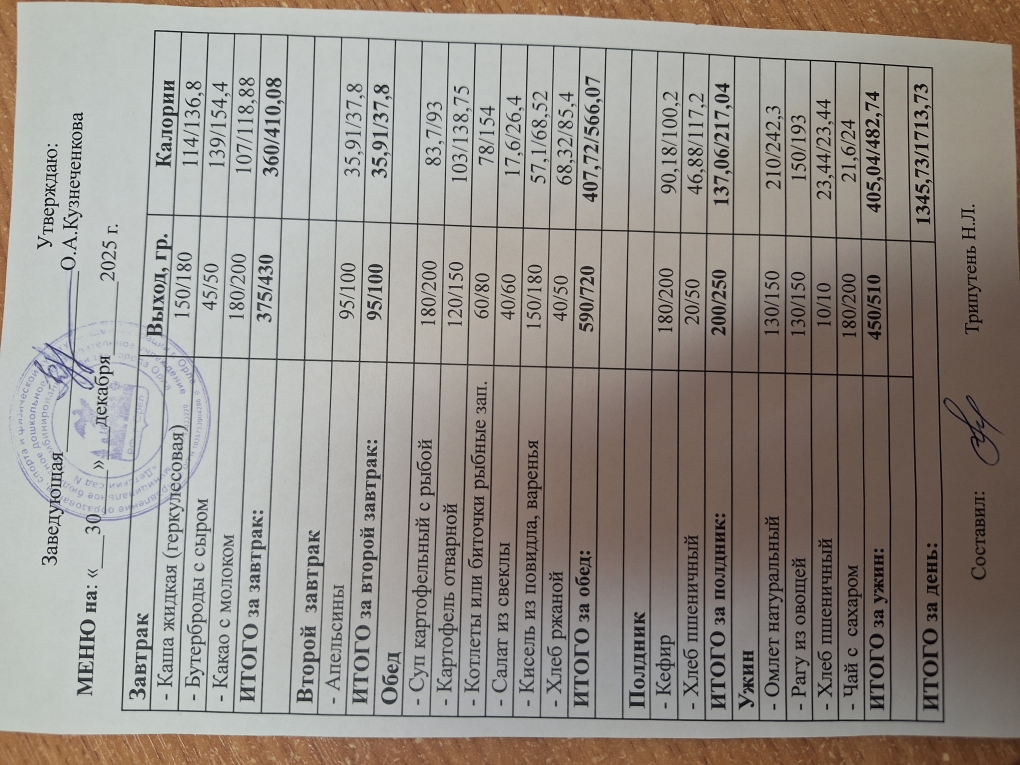 Утверждаю:
Заведующая О.А.Кузнеченкова
МЕНЮ на: «__30__» декабря 2025 г.
Завтрак Выход, гр. Калории
- Каша жидкая (геркулесовая) 150/180 114/136,8
- Бутерброды с сыром 45/50 139/154,4
- Какао с молоком 180/200 107/118,88
ИТОГО за завтрак: 375/430 360/410,08
Второй завтрак
- Апельсины 95/100 35,91/37,8
ИТОГО за второй завтрак: 95/100 35,91/37,8
Обед
- Суп картофельный с рыбой 180/200 83,7/93
- Картофель отварной 120/150 103/138,75
- Котлеты или биточки рыбные зап. 60/80 78/154
- Салат из свеклы 40/60 17,6/26,4
- Кисель из повидла, варенья 150/180 57,1/68,52
- Хлеб ржаной 40/50 68,32/85,4
ИТОГО за обед: 590/720 407,72/566,07
Полдник
- Кефир 180/200 90,18/100,2
- Хлеб пшеничный 20/50 46,88/117,2
ИТОГО за полдник: 200/250 137,06/217,04
Ужин
- Омлет натуральный 130/150 210/242,3
- Рагу из овощей 130/150 150/193
- Хлеб пшеничный 10/10 23,44/23,44
- Чай с сахаром 180/200 21,6/24
ИТОГО за ужин: 450/510 405,04/482,74
ИТОГО за день: 1345,73/1713,73
Составил: Трипутень Н.Л.